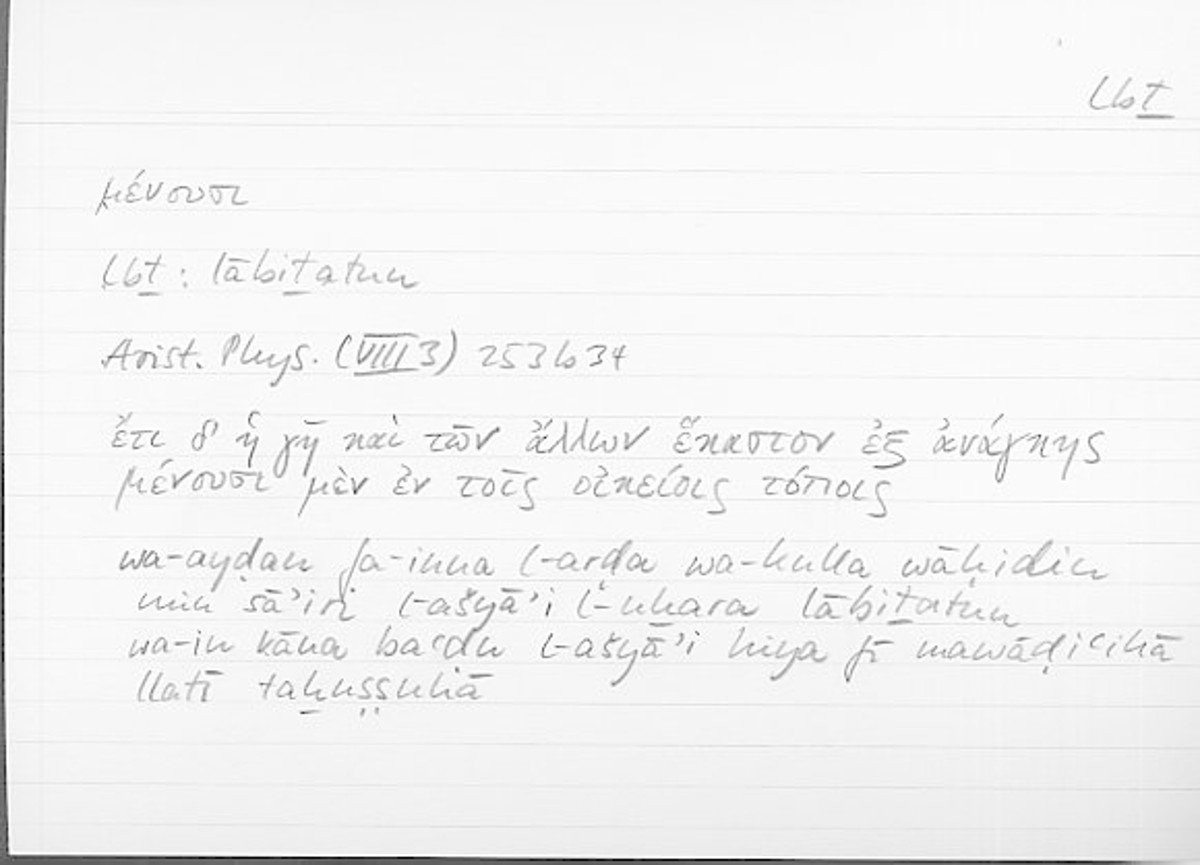 lbṯ
μένουσι
lbṯ : lābiṯatun
Arist. Phys. (VIII 3) 253b34
ἔτι δ' ἡ γῆ καὶ τῶν ἄλλων ἕκαστον ἐξ ἀνάγκης
μένουσι μὲν ἐν τοῖς οἰκείοις τόποις
wa-ayḍan fa-inna l-arḍa wa-kulla wāḥidin
min sāʾiri l-ašyāʾi l-uḫara lābiṯatun
wa-in kāna baʿḍu l-ašyāʾi hiya fī mawāḍiʿihā
llatī taḫuṣṣuhā